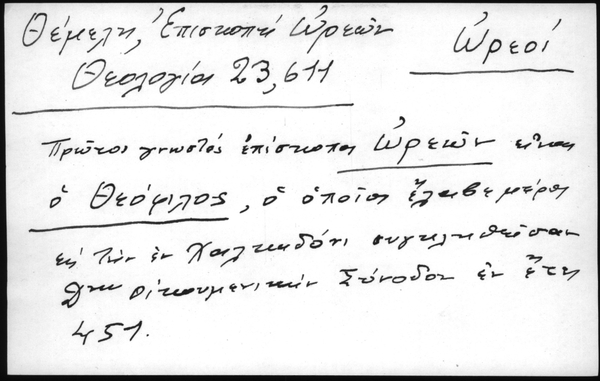 Θέμελη, Ἐπισκοπή Ὠρεῶν
Ὠρεοί
Θεολογία 23, 611
Πρῶτος γνωστός ἐπίσκοπος Ὠρεῶν εἶναι
ὁ Θεόφιλος, ὁ ὁποῖος ἔλαβε μέρος
εἰς τὴν ἐν Χαλκηδόνι συγκληθεῖσαν
Δην οἰκουμενικήν Σύνοδον ἐν ἔτει
451.